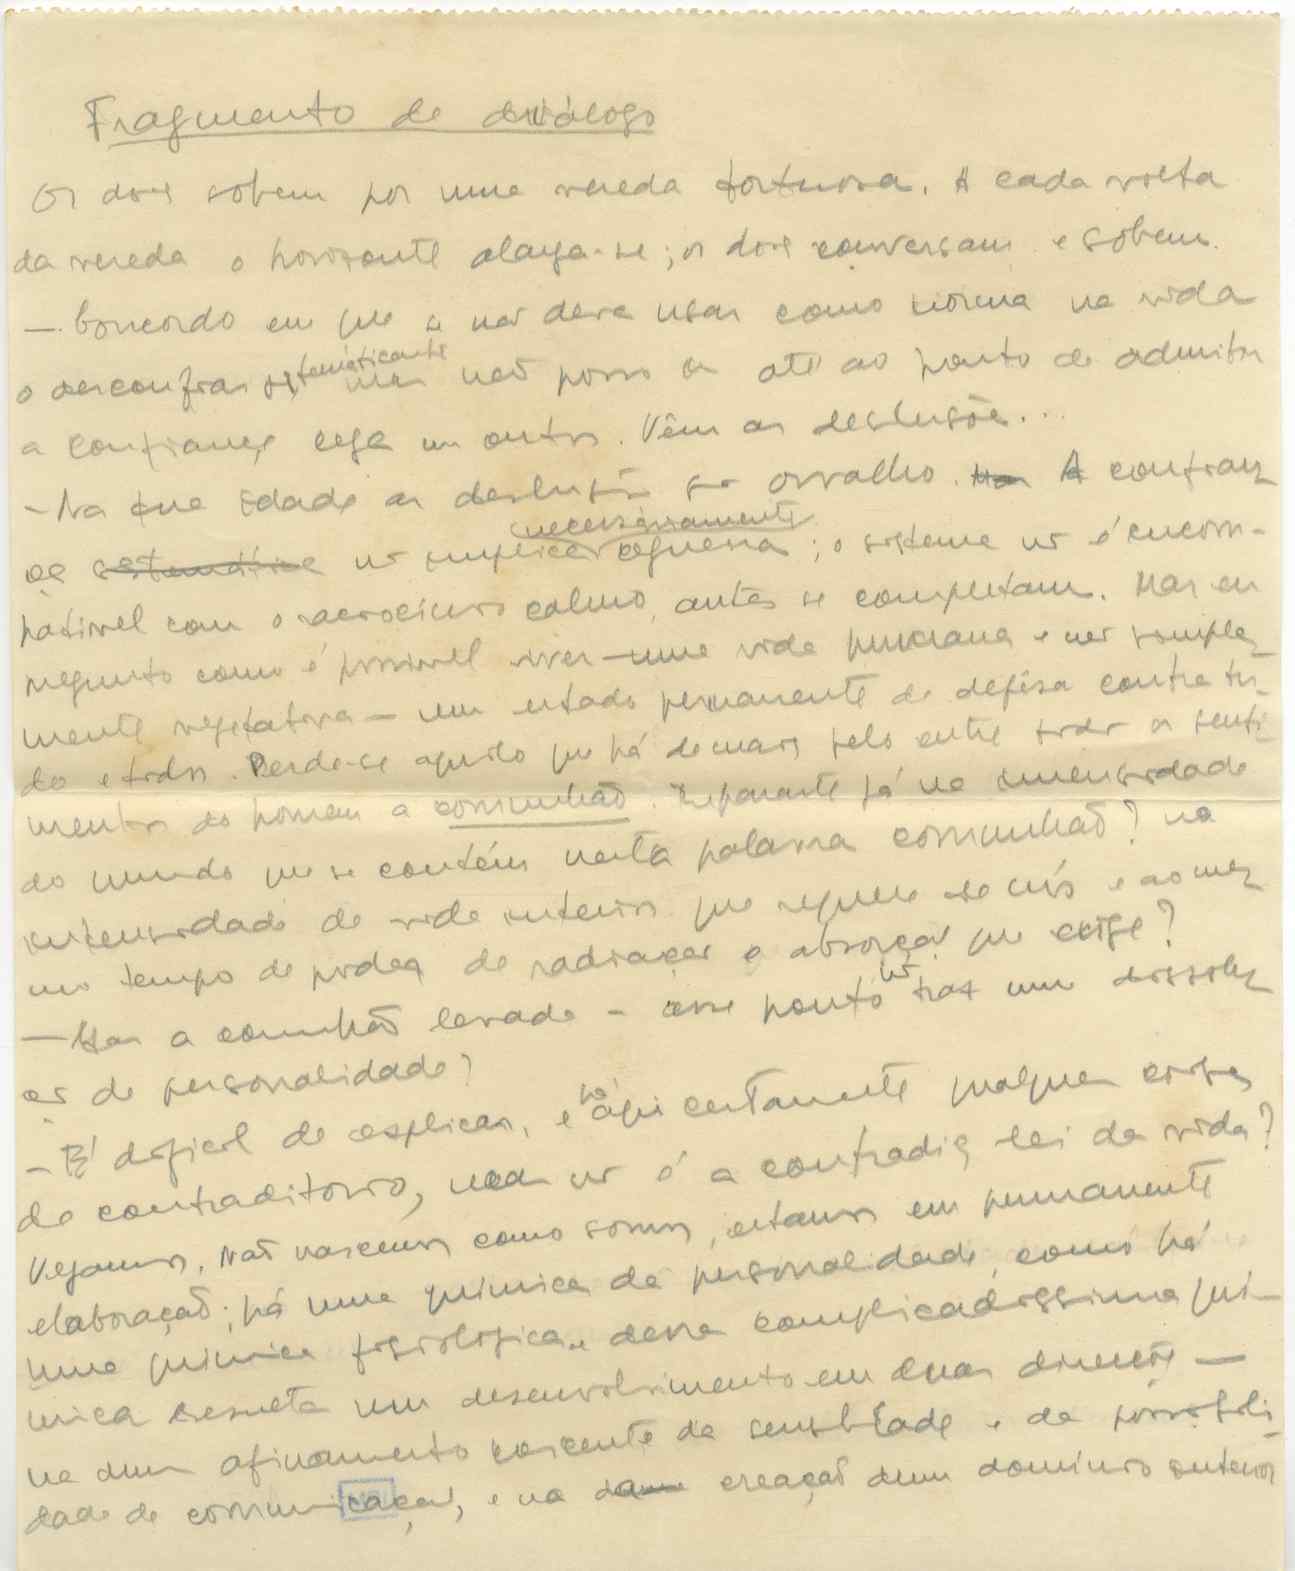 Fragmento de diálogo
Os dois sobem por uma vereda tortuosa. A cada volta
da vereda o horizonte alarga-se; os dois conversam e sobem.
— Concordo em que se não deva usar como norma na vida
o desconfiar sistematicamente mas não posso ir até ao ponto de admitir
a confiança cega nos outros. Vêm as desilusões...
— Na sua idade as desilusões são orvalho. A confian
ça sistemática não implica necessariamente cegueira; o sistema não é incom-
patível com o raciocínio calmo, antes se completam. Mas eu
pergunto como é possível viver — uma vida humana e não simples
mente vegetativa — em estado permanente de defesa contra tu-
do e todos. Perde-se aquilo que há de mais belo entre todos os senti-
mentos do homem a comunhão. Reparaste já na imensidade
do mundo que se contém nesta palavra comunhão? na
intensidade de vida interior que requere e ao mes
mo tempo de poder de radiação e absorção que exige?
— Mas a comunhão levada a esse ponto não traz uma dissolu
ção de personalidade?
— É difícil de explicar, e há aqui certamente qualquer coisa
de contraditório, mas não é a contradição lei da vida?
Vejamos. Não nascemos como somos, estamos em permanente
elaboração; há uma química da personalidade, como há
uma química fisiológica e dessa complicadíssima quí-
mica resulta um desenvolvimento em duas direcções —
na dum afinamento crescente da sensibilidade e da possibili-
dade de comunicação, e na creação dum domínio interior